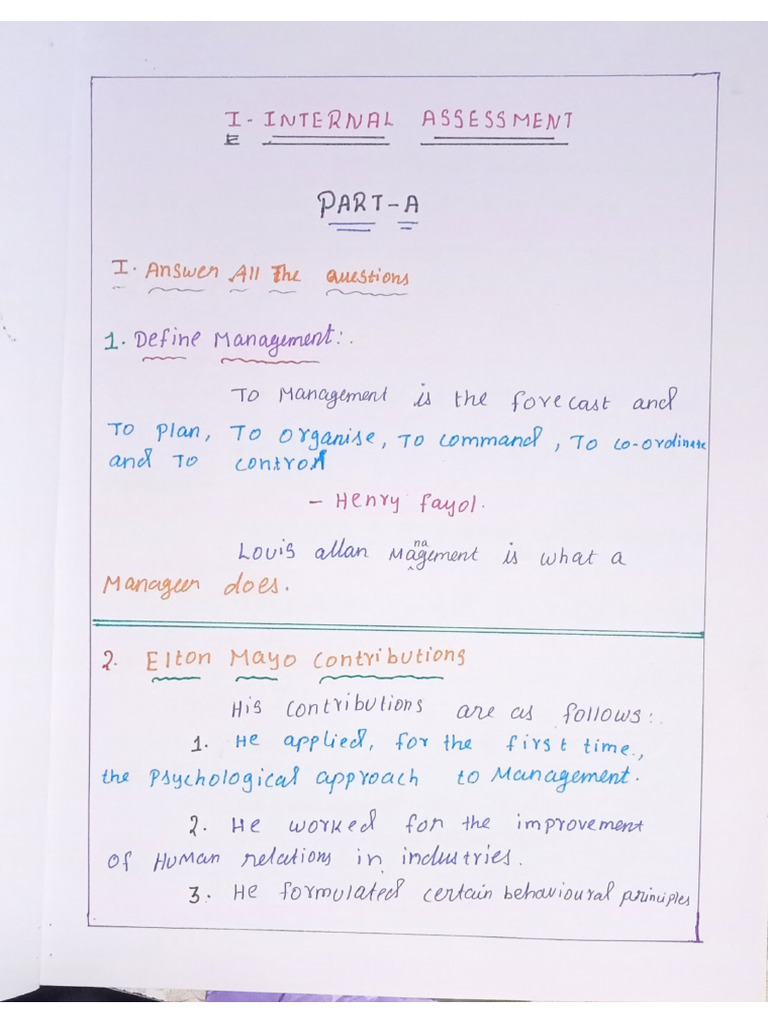 I - INTERNAL ASSESSMENT
PART-A
I. Answer All The Questions
1. Define Management:.
To Management is the forecast and
To plan, To organise, To command, To co-ordinate
and To control
- Henry fayol.
Louis allan Management is what a
Manageer does.
2. Elton Mayo Contributions
His contributions are as follows:.
1. He applied, for the first time.,
the Psychological approach to Management.
2. He worked for the improvement
of Human relations in industries.
3. He formulated certain behavioural principles